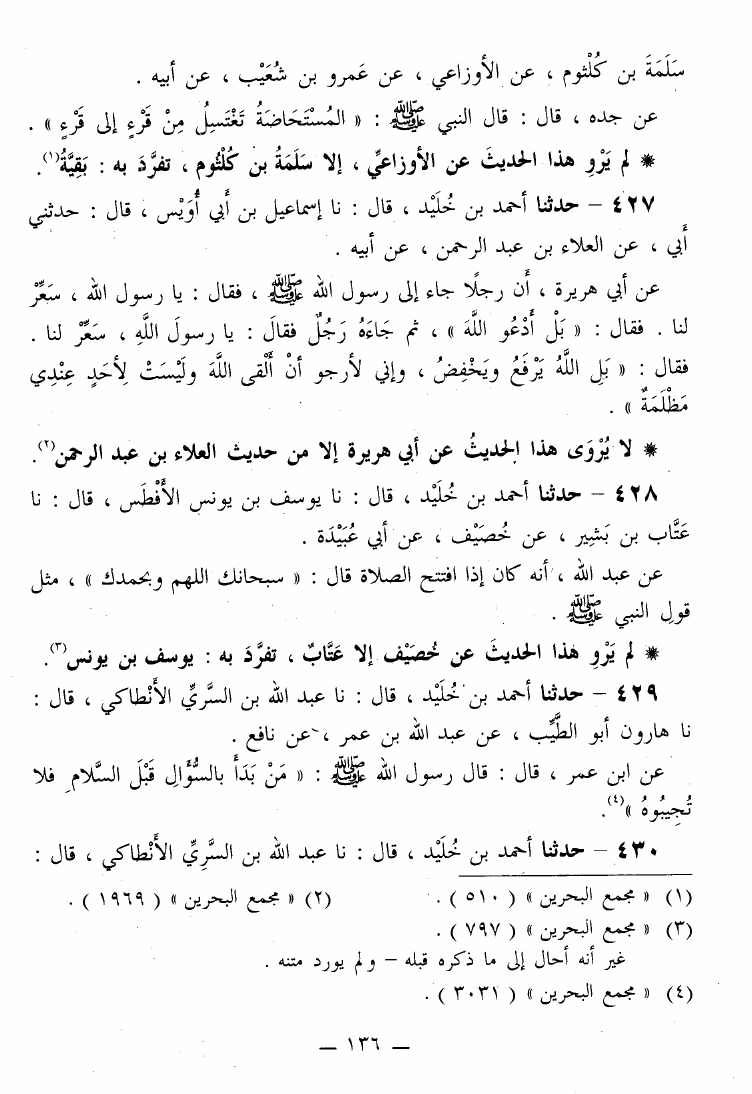 سَلَمَةَ بن كُلْثوم ، عن الأوزاعي ، عن عَمرو بن شُعَيْب ، عن أبيه .
عن جده ، قال : قال النبي ﷺ : « المُسْتَحَاضَةُ تَغْتَسِلُ مِنْ قَرْءٍ إلى قَرْءٍ » .
* لم يَرْوِ هذا الحديثَ عن الأوزاعيِّ ، إلا سَلَمَةُ بن كُلْثُوم ، تفرَّدَ به : بَقِيَّةُ(١).
٤٢٧ – حدثنا أحمد بن خُلَيْد ، قال : نا إسماعيل بن أبي أُوَيْس ، قال : حدثني
أَبي ، عن العلاء بن عبد الرحمن ، عن أبيه .
عن أبي هريرة ، أَن رجلًا جاء إلى رسول الله ﷺ ، فقال : يا رسول الله ، سَعِّرْ
لنا . فقال : « بَلْ أَدْعُو اللَّهَ » ، ثم جَاءَهُ رَجُلٌ فقالَ : يا رسولَ اللَّهِ ، سَعِّرْ لنا .
فقال : « بَلِ اللَّهُ يَرْفَعُ ويَخْفِضُ ، وإني لأرجو أنْ أَلْقى اللَّهَ ولَيْسَتْ لِأحَدٍ عِنْدِي
مَظْلَمَةٌ » .
* لا يُرْوَى هذا الحديثُ عن أبي هريرة إلا من حديث العلاء بن عبد الرحمن(٢).
٤٢٨ – حدثنا أحمد بن خُلَيْد ، قال : نا يوسف بن يونس الأَفْطَس ، قال : نا
عَتَّاب بن بَشِير ، عن خُصَيْف ، عن أبي عُبَيْدَة .
عن عبد الله ، أنه كان إذا افتتح الصلاة قال : « سبحانك اللهم وبحمدك » ، مثل
قولِ النبي ﷺ .
* لم يَرْوِ هذا الحديثَ عن خُصَيْف إلا عَتَّابٌ ، تفرَّدَ به : يوسف بن يونس(٣).
٤٢٩ – حدثنا أحمد بن خُلَيْد ، قال : نا عبد الله بن السَّرِيِّ الأَنْطاكي ، قال :
نا هارون أبو الطَّيِّب ، عن عبد الله بن عمر ، عن نافع .
عن ابن عمر ، قال : قال رسول الله ﷺ : « مَنْ بَدَأَ بالسُّؤَالِ قَبْلَ السَّلامِ فلا
تُجِيبُوهُ »(٤).
٤٣٠ – حدثنا أحمد بن خُلَيْد ، قال : نا عبد الله بن السَّرِيِّ الأَنْطاكي ، قال :
(١) « مجمع البحرين » ( ٥١٠ ) . (٢) « مجمع البحرين » ( ١٩٦٩ ) .
(٣) « مجمع البحرين » ( ٧٩٧ ) .
غير أنه أحال إلى ما ذكره قبله – ولم يورد متنه .
(٤) « مجمع البحرين » ( ٣٠٣١ ) .
– ١٣٦ –